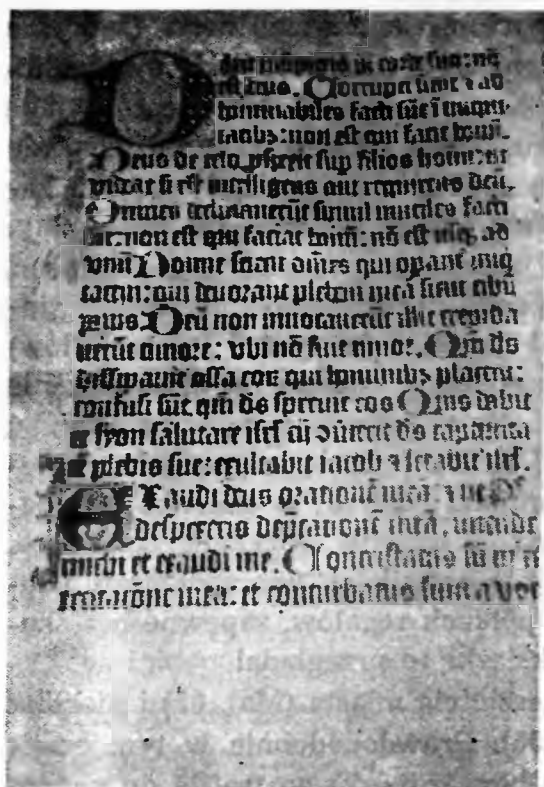 Dixit insipiens in corde suo: nō
est deus. Corrupti sunt ⁊ ab
hominabiles facti sūt ī iniqui-
tatibꝫ: non est qui faciat bonū.
Deus de celo ꝓspexit sup filios hoīm: ut
videat si est intelligens aut requirens deū.
Omnes declinauerūt simul inutiles facti
sūt: non est qui faciat bonū: nō est usqꝫ ad
vnū Nonne scient om̄es qui opant̄ iniq
tatem: qui deuorant plebem meā sicut cibū
panis Deū non inuocauerūt illic trepida
uerūt timore: vbi nō fuit timor. Qm̄ ds
dissipauit ossa eoꝝ qui hominibꝫ placent:
confusi sūt qm̄ ds spreuit eos Quis dabit
ex syon salutare isrl̄ cū ꝯūterit ds captiuita
tē plebis sue: exultabit iacob ⁊ letabit̄ isrl̄.
Exaudi deus orationē meā ⁊ ne
despexeris dep̄cationē meā, intende
michi et exaudi me. Contristatus sū in ex
ercitatiōne mea: et conturbatus sum a voc